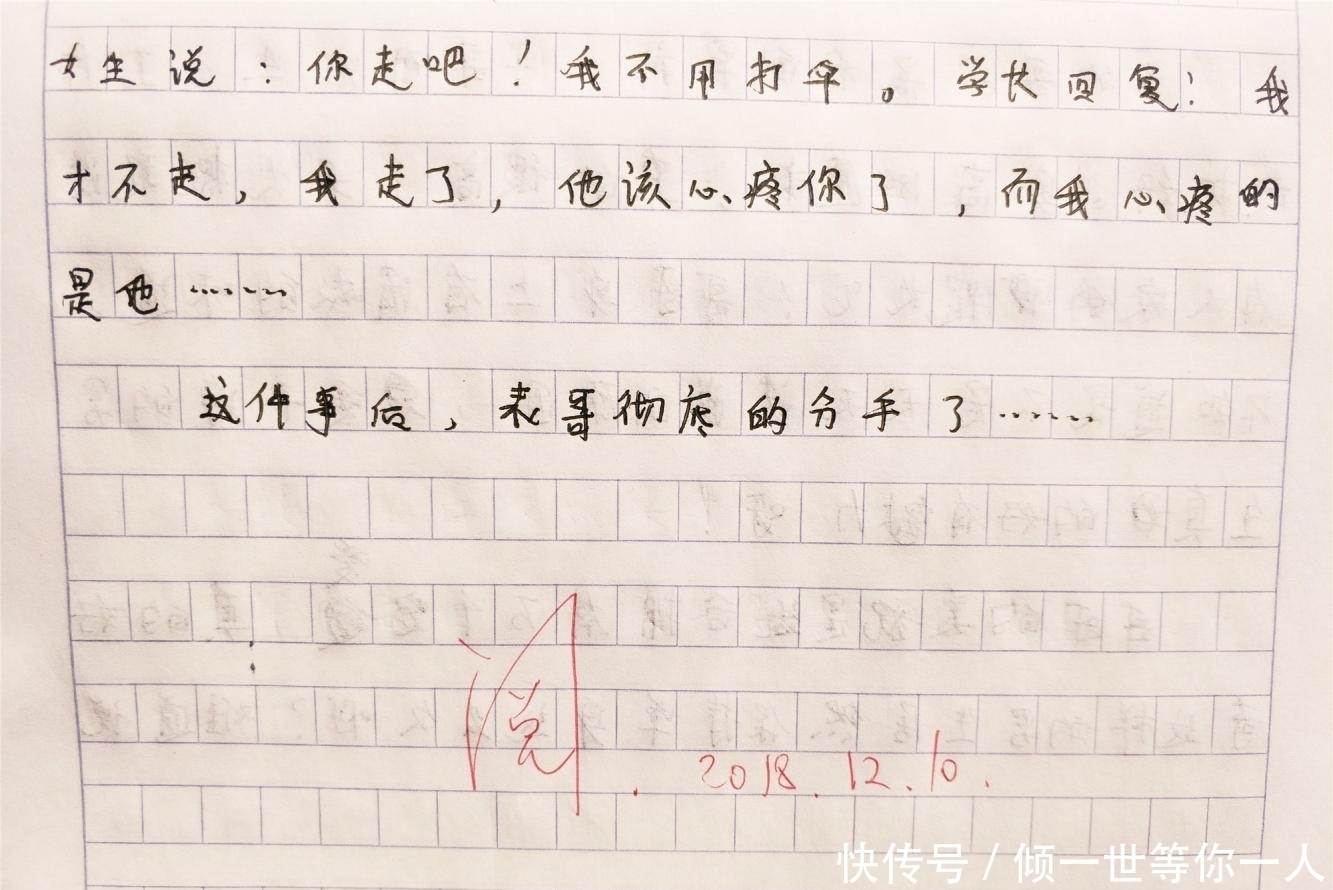 女生说：你走吧！我不用打伞。学长回复！我
才不走，我走了，他该心疼你了，而我心疼的
是他……
这件事后，表哥彻底的分手了……
阅.2018.12.10.
快传号/倾一世等你一人